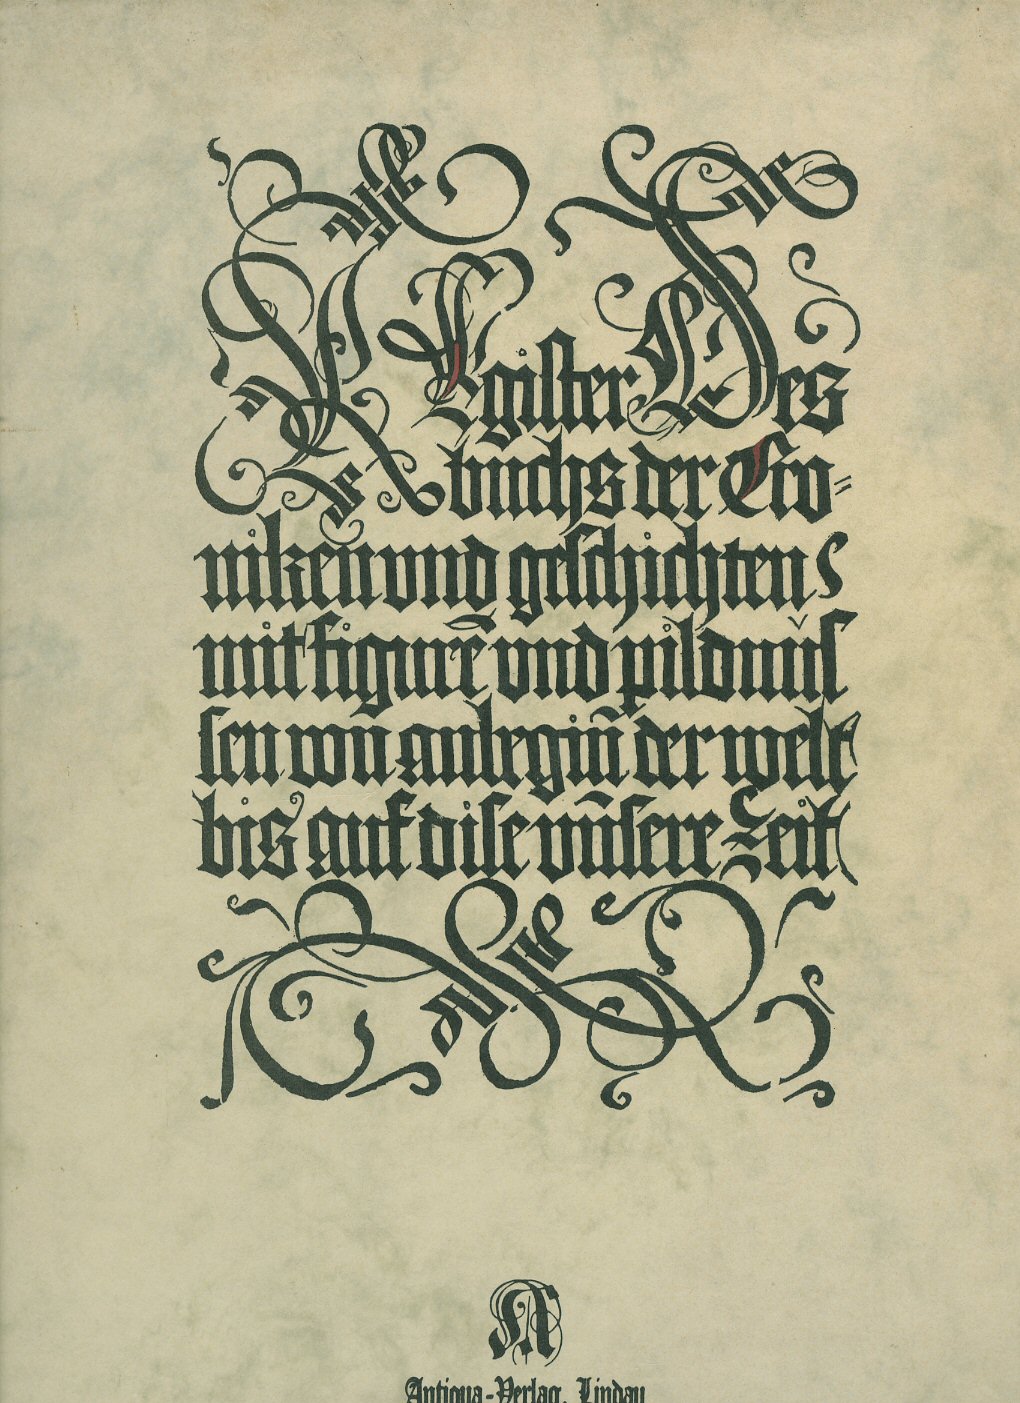 REgister Des
buchs der Cro=
niken vnd geschichten
mit figurẽ vnd pildnüs
sen von anbegiñ der welt
bis auf dise vñsere Zeit
Antiqua-Verlag, Lindau